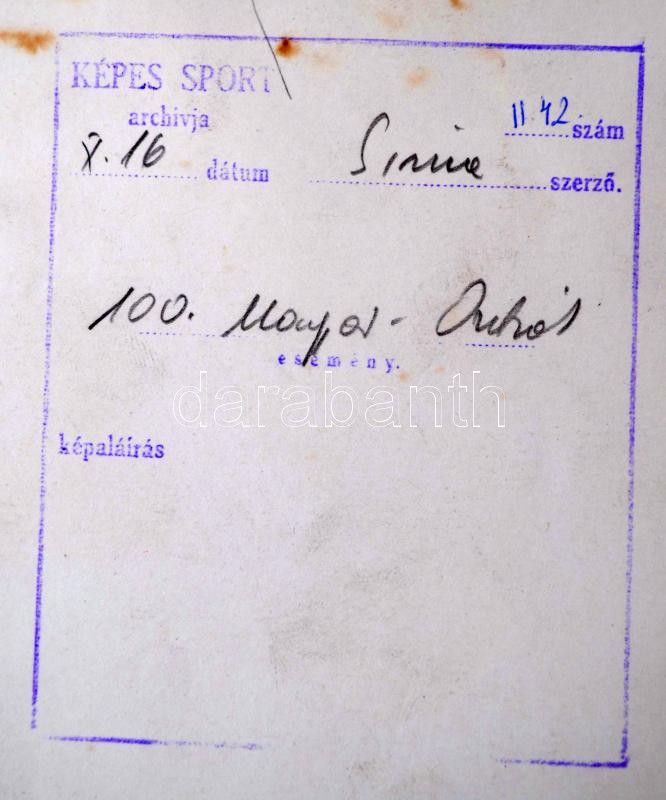 KÉPES SPORT
archívja
II. 42 szám
X. 16 dátum
szerző.
100. Magyar - Osztrák
esemény.
darabanth
képaláírás